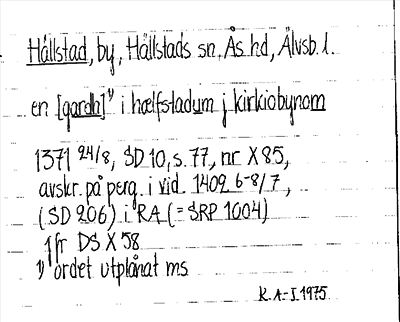 Hällstad, by, Hällstads sn, Ås hd, Älvsb. l.
en [gardh]¹⁾ i hælfstadum j kirkiobynom
1371 24/8, SD 10, s. 77, nr X 85,
avskr. på perg. i vid. 1409 6-8/7,
(SD 206) i RA (= SRP 1004)
jfr DS X 58
1) ordet utplånat ms
K.A-I. 1975